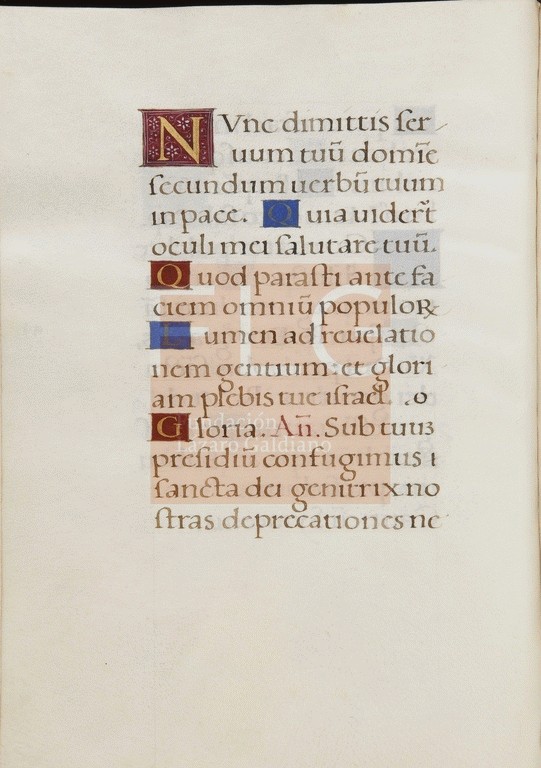 NVnc dimittis ser
uum tuū domīe
secundum uerbū tuum
in pace. Quia uiderūt
oculi mei salutare tuū.
Quod parasti ante fa
ciem omniū populoꝝ
Lumen ad reuelatio
nem gentium: et glori
am plebis tue israel.
Gloria. An̄. Sub tuū
presidiū confugimus
sancta dei genitrix no
stras deprecationes ne
FLG
Fundación
Lázaro Galdiano